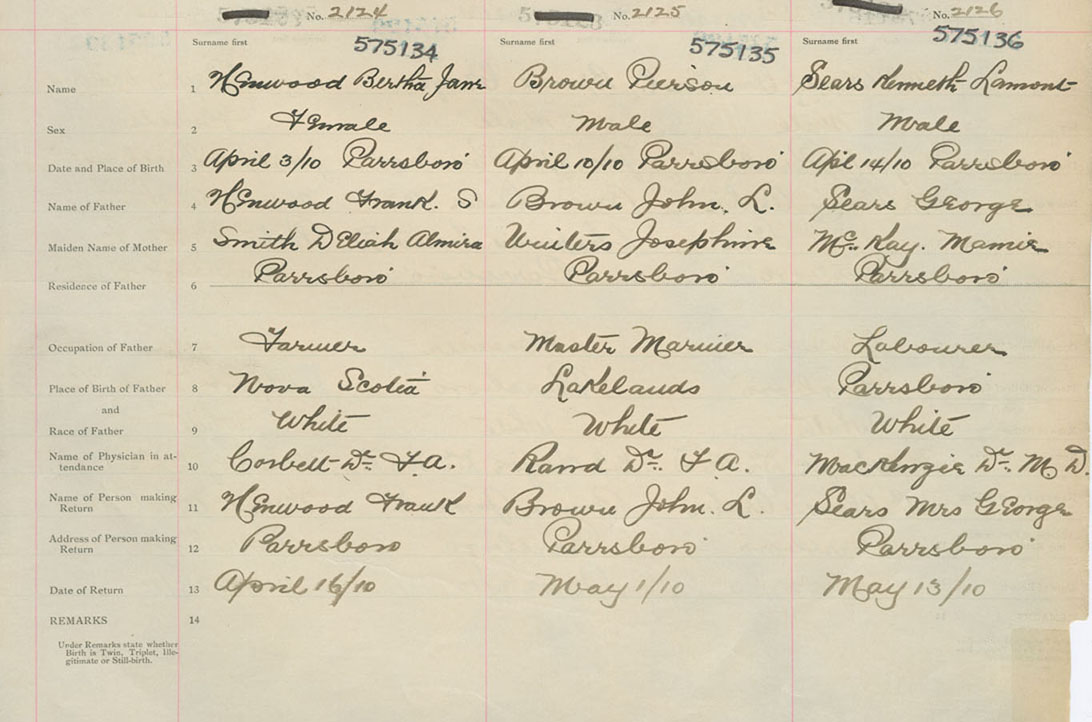 No. 2124 No. 2125 No. 2126
Surname first 575134 Surname first 575135 Surname first 575136
Name 1 Henwood Bertha Jane Brown Pierson Sears Kenneth Lamont
Sex 2 Female Male Male
Date and Place of Birth 3 April 3/10 Parrsboro April 10/10 Parrsboro Apl 14/10 Parrsboro
Name of Father 4 Henwood Frank. S Brown John. L. Sears George
Maiden Name of Mother 5 Smith DEliah Almira Winters Josephine Mc. Kay. Mamie
Residence of Father 6 Parrsboro Parrsboro Parrsboro
Occupation of Father 7 Farmer Master Mariner Labourer
Place of Birth of Father 8 Nova Scotia Lakelands Parrsboro
and
Race of Father 9 White White White
Name of Physician in at-
tendance 10 Corbett Dr. F A. Rand Dr. F A. MacKenzie Dr. M D.
Name of Person making
Return 11 Henwood Frank Brown John. L. Sears Mrs George
Address of Person making
Return 12 Parrsboro Parrsboro Parrsboro
Date of Return 13 April 16/10 May 1/10 May 13/10
REMARKS 14
Under Remarks state whether
Birth is Twin, Triplet, Ille-
gitimate or Still-birth.